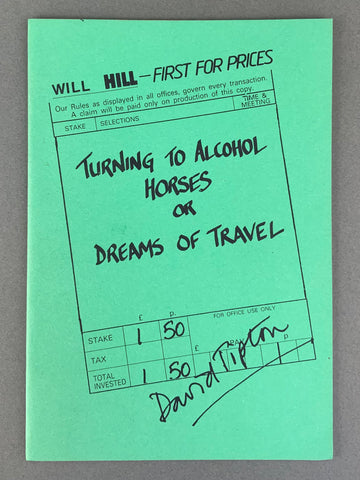 WILL HILL — FIRST FOR PRICES
Our Rules as displayed in all offices, govern every transaction.
A claim will be paid only on production of this copy.
STAKE SELECTIONS TIME & MEETING
TURNING TO ALCOHOL
HORSES
OR
DREAMS OF TRAVEL
£ p. FOR OFFICE USE ONLY
STAKE 1 50
TAX £ p
TOTAL INVESTED 1 50
David Tipton